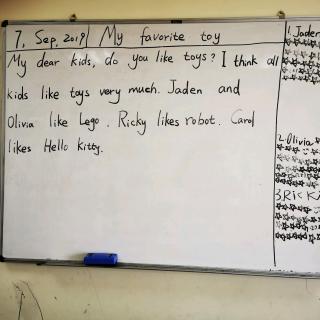 7, Sep, 2019 My favorite toy
My dear kids, do you like toys? I think all
kids like toys very much. Jaden and
Olivia like Lego. Ricky likes robot. Carol
likes Hello Kitty.
1. Jaden
2. Olivia
3. Ricki